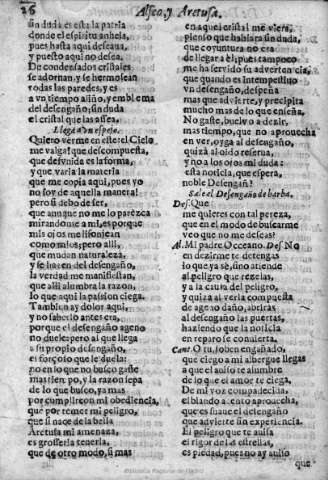 26
Alfeo, y Aretusa.
sin duda es esta la patria
donde el espiritu anhela,
pues hasta aqui deseaua,
y puesto aqui no desea.
De condensados cristales
se adornan, y se hermosean
todas las paredes, y es
a vn tiempo aliño, y emblema
del desengaño, sin duda
el cristal que las assea.
Llega a vn espejo.
Quiero verme en este: el Cielo
me valga! que descompuesta,
que desvnida es la forma,
y que varia la materia
que me copia aqui, pues yo
no soy de aquella manera!
pero si debo de ser,
que aunque no me lo parezca
mirandome a mi, es porque
mis ojos me lisonjean
como mios; pero alli,
que mudan naturaleza,
y se hazen del desengaño,
la verdad me manifiestan,
que alli alumbra la razon,
lo que aqui la passion ciega.
Tambien ay dolor aqui,
y no saberlo antes era,
porque el desengaño ageno
no duele: pero al que llega
a su propio desengaño,
es forçoso que le duela:
no en lo que no busco gaste
mas tiempo, y la razon sepa
de lo que busco, ya mas
por cumplir con mi obediencia,
que por temer mi peligro,
que si nace de la bella
Aretusa mi amenaza,
es grosseria tenerla,
que de otro modo, si mas
en aquel cristal me viera,
pienso que hablàra sin duda,
que coyuntura no era
de llegar a èl, pues tampoco
me ha servido su advertencia,
que quando es intempestiuo
vn desengaño, despeña
mas que advierte, y precipita
mucho mas de lo que enseña.
No gaste, buelvo a dezir,
mas tiempo, que no aprouecha
en ver, oyga al desengaño,
quizà al oido reserua,
y no a los ojos mi duda:
esta noticia, que espera,
noble Desengaño?
Sale el Desengaño de barba.
Des. Que
me quieres con tal pereza,
que en el modo de buscarme
veo que no me deseas?
Al. Mi padre Occeano. Des. No
en dezirme te detengas
lo que ya sè, sino atiende
al peligro que rezelas,
y a la causa del peligro,
y quizà al verla compuesta
de ageno daño, abriràs
al desengaño las puertas,
haziendo que la noticia
en reparo se conuierta.
Cant. O tu, jouen engañado,
que ciego a mi albergue llegas
a que el auiso te alumbre
de lo que el amor te ciega.
De mi voz compadecida,
el blando acento aprouecha,
que es suaue el desengaño
que advierte sin experiencia.
El peligro que te auisa
el rigor de las estrellas,
es piedad, pues no ay auiso
que